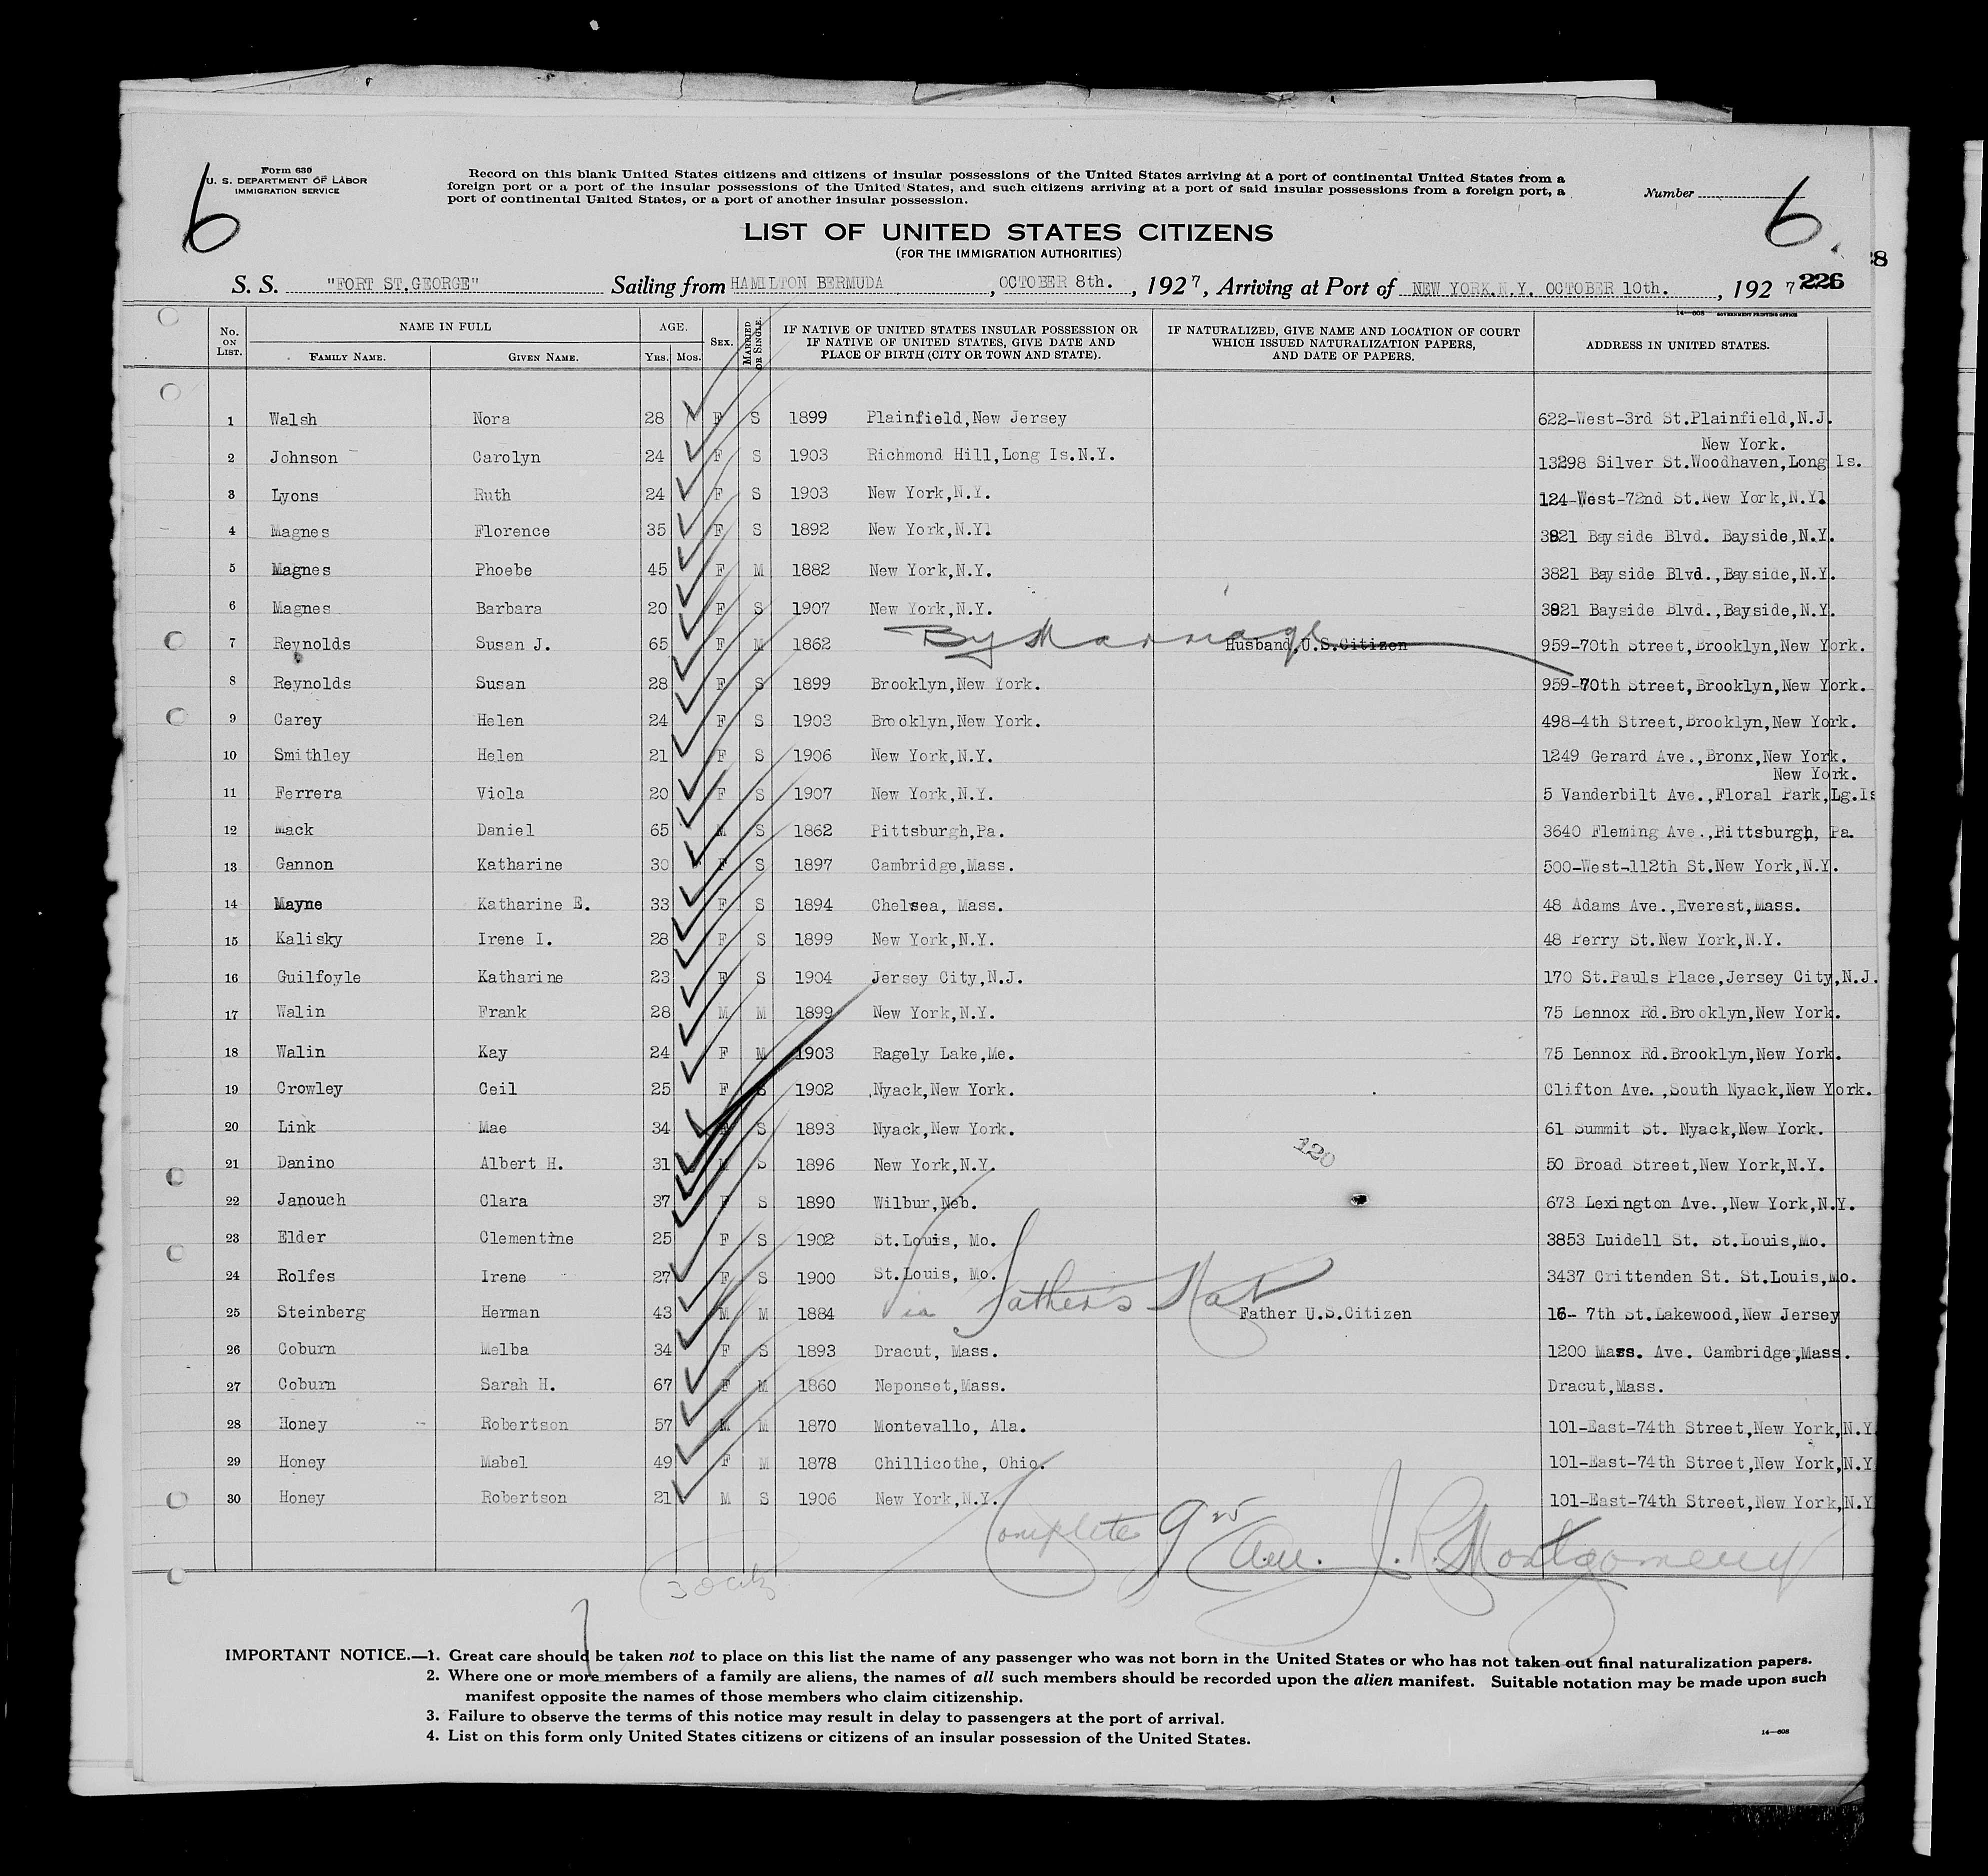 Form 630
U. S. DEPARTMENT OF LABOR
IMMIGRATION SERVICE
6
Record on this blank United States citizens and citizens of insular possessions of the United States arriving at a port of continental United States from a
foreign port or a port of the insular possessions of the United States, and such citizens arriving at a port of said insular possessions from a foreign port, a
port of continental United States, or a port of another insular possession.
Number
6
LIST OF UNITED STATES CITIZENS
(FOR THE IMMIGRATION AUTHORITIES)
S. S. "FORT ST.GEORGE" Sailing from HAMILTON BERMUDA , OCTOBER 8th. , 1927, Arriving at Port of NEW YORK.N.Y. OCTOBER 10th. , 1927 226
14—608 GOVERNMENT PRINTING OFFICE
No. ON LIST. NAME IN FULL FAMILY NAME. GIVEN NAME. AGE. YRS. MOS. SEX. MARRIED OR SINGLE. IF NATIVE OF UNITED STATES INSULAR POSSESSION OR IF NATIVE OF UNITED STATES, GIVE DATE AND PLACE OF BIRTH (CITY OR TOWN AND STATE). IF NATURALIZED, GIVE NAME AND LOCATION OF COURT WHICH ISSUED NATURALIZATION PAPERS, AND DATE OF PAPERS. ADDRESS IN UNITED STATES.
1 Walsh Nora 28 F S 1899 Plainfield,New Jersey 622-West-3rd St.Plainfield,N.J.
New York.
2 Johnson Carolyn 24 F S 1903 Richmond Hill,Long Is.N.Y. 13298 Silver St.Woodhaven,Long Is.
3 Lyons Ruth 24 F S 1903 New York,N.Y. 124-West-72nd St.New York,N.Y.
4 Magnes Florence 35 F S 1892 New York,N.Y. 3821 Bayside Blvd. Bayside,N.Y.
5 Magnes Phoebe 45 F M 1882 New York,N.Y. 3821 Bayside Blvd.,Bayside,N.Y.
6 Magnes Barbara 20 F S 1907 New York,N.Y. 3821 Bayside Blvd.,Bayside,N.Y.
7 Reynolds Susan J. 65 F M 1862 By Marriage Husband,U.S.Citizen 959-70th Street,Brooklyn,New York.
8 Reynolds Susan 28 F S 1899 Brooklyn,New York. 959-70th Street,Brooklyn,New York.
9 Carey Helen 24 F S 1903 Brooklyn,New York. 498-4th Street,Brooklyn,New York.
10 Smithley Helen 21 F S 1906 New York,N.Y. 1249 Gerard Ave.,Bronx,New York.
New York.
11 Ferrera Viola 20 F S 1907 New York,N.Y. 5 Vanderbilt Ave.,Floral Park,Lg.Is
12 Mack Daniel 65 M S 1862 Pittsburgh,Pa. 3640 Fleming Ave.,Pittsburgh, Pa.
13 Gannon Katharine 30 F S 1897 Cambridge,Mass. 500-West-112th St.New York,N.Y.
14 Mayne Katharine E. 33 F S 1894 Chelsea, Mass. 48 Adams Ave.,Everest,Mass.
15 Kalisky Irene I. 28 F S 1899 New York,N.Y. 48 Perry St.New York,N.Y.
16 Guilfoyle Katharine 23 F S 1904 Jersey City,N.J. 170 St.Pauls Place,Jersey City,N.J.
17 Walin Frank 28 M M 1899 New York,N.Y. 75 Lennox Rd.Brooklyn,New York.
18 Walin Kay 24 F M 1903 Ragely Lake,Me. 75 Lennox Rd.Brooklyn,New York.
19 Crowley Ceil 25 F S 1902 Nyack,New York. Clifton Ave.,South Nyack,New York.
20 Link Mae 34 F S 1893 Nyack,New York. 61 Summit St. Nyack,New York.
120
21 Danino Albert H. 31 M S 1896 New York,N.Y. 50 Broad Street,New York,N.Y.
22 Janouch Clara 37 F S 1890 Wilbur,Neb. 673 Lexington Ave.,New York,N.Y.
23 Elder Clementine 25 F S 1902 St.Louis, Mo. 3853 Luidell St. St.Louis,Mo.
24 Rolfes Irene 27 F S 1900 St.Louis, Mo. 3437 Crittenden St. St.Louis,Mo.
25 Steinberg Herman 43 M M 1884 via Fathers Nat Father U.S.Citizen 16- 7th St.Lakewood,New Jersey
26 Coburn Melba 34 F S 1893 Dracut, Mass. 1200 Mass. Ave. Cambridge,Mass.
27 Coburn Sarah H. 67 F M 1860 Neponset,Mass. Dracut,Mass.
28 Honey Robertson 57 M M 1870 Montevallo, Ala. 101-East-74th Street,New York,N.Y
29 Honey Mabel 49 F M 1878 Chillicothe, Ohio. 101-East-74th Street,New York,N.Y
30 Honey Robertson 21 M S 1906 New York,N.Y. 101-East-74th Street,New York,N.Y
Complete J. R. Montgomery
IMPORTANT NOTICE.—1. Great care should be taken not to place on this list the name of any passenger who was not born in the United States or who has not taken out final naturalization papers.
2. Where one or more members of a family are aliens, the names of all such members should be recorded upon the alien manifest. Suitable notation may be made upon such
manifest opposite the names of those members who claim citizenship.
3. Failure to observe the terms of this notice may result in delay to passengers at the port of arrival.
4. List on this form only United States citizens or citizens of an insular possession of the United States.
14—608